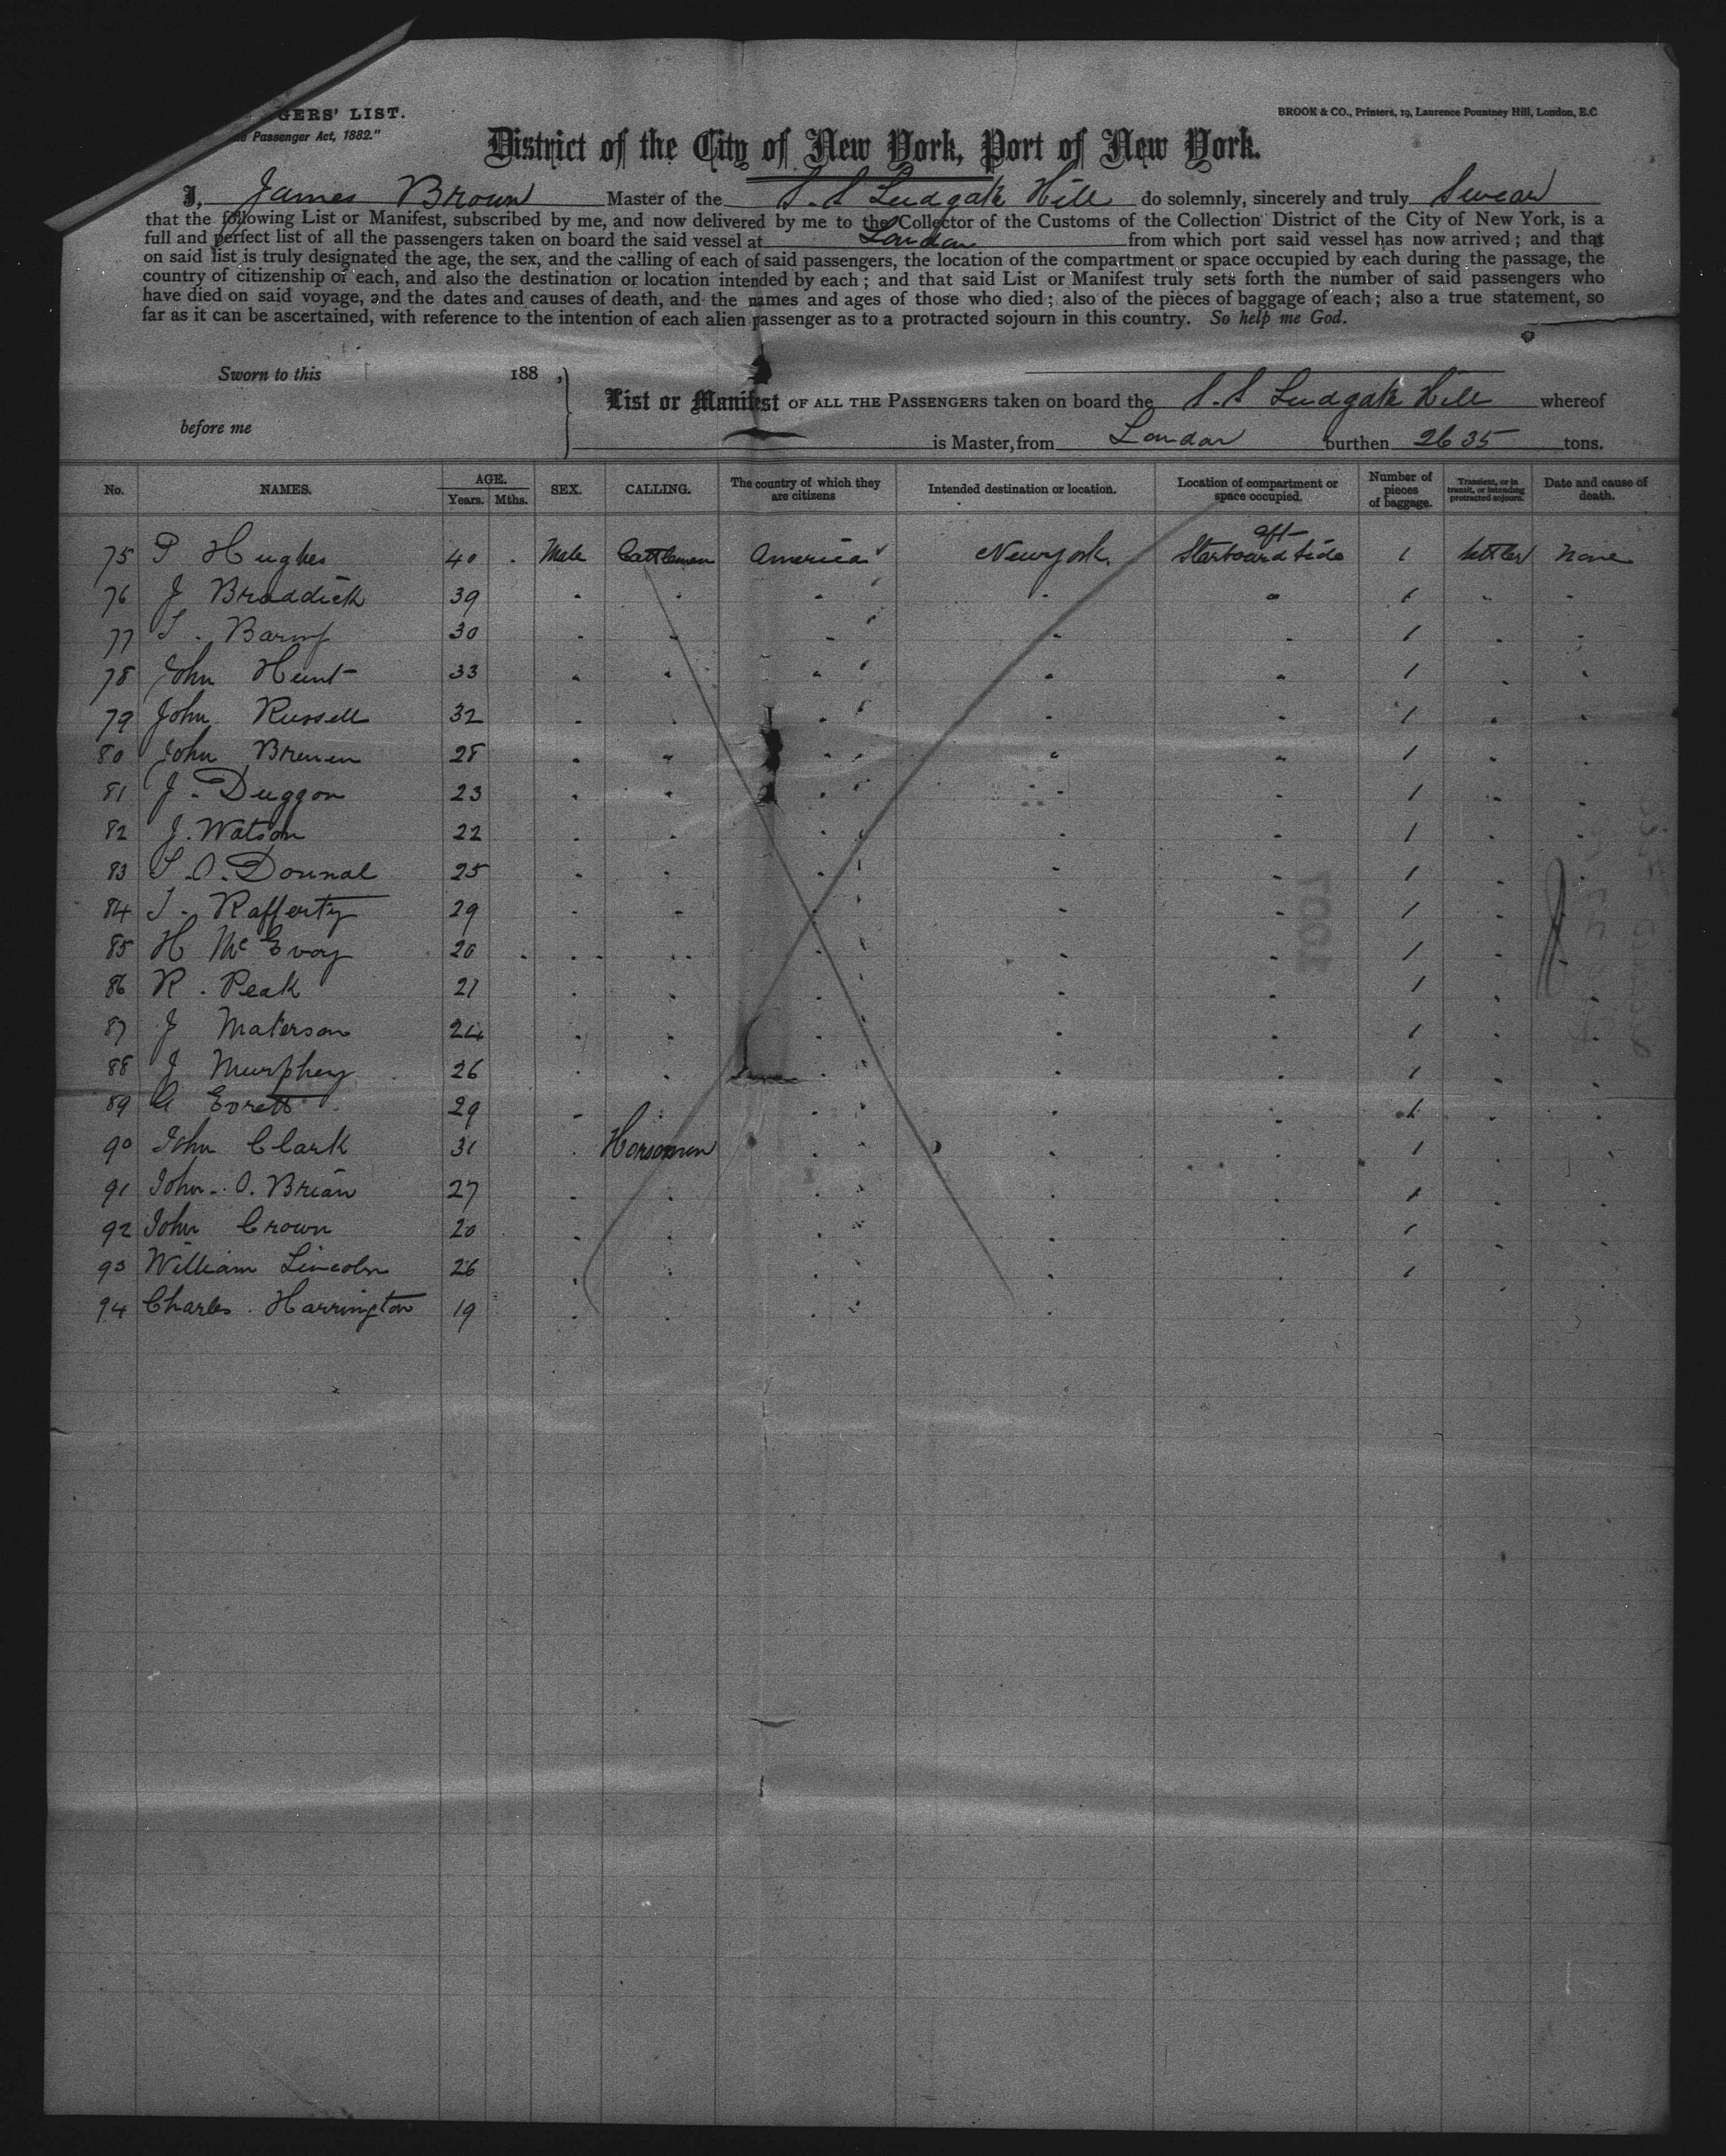 GERS' LIST.
Passenger Act, 1882."
BROOK & CO., Printers, 19, Laurence Pountney Hill, London, E.C
District of the City of New York, Port of New York.
I, James Brown Master of the S.S Ludgate Hill do solemnly, sincerely and truly Swear
that the following List or Manifest, subscribed by me, and now delivered by me to the Collector of the Customs of the Collection District of the City of New York, is a
full and perfect list of all the passengers taken on board the said vessel at London from which port said vessel has now arrived; and that
on said list is truly designated the age, the sex, and the calling of each of said passengers, the location of the compartment or space occupied by each during the passage, the
country of citizenship of each, and also the destination or location intended by each; and that said List or Manifest truly sets forth the number of said passengers who
have died on said voyage, and the dates and causes of death, and the names and ages of those who died; also of the pieces of baggage of each; also a true statement, so
far as it can be ascertained, with reference to the intention of each alien passenger as to a protracted sojourn in this country. So help me God.
Sworn to this 188 ,
before me
List or Manifest OF ALL THE PASSENGERS taken on board the S.S Ludgate Hill whereof
is Master, from London burthen 2635 tons.
No. NAMES. AGE. Years. Mths. SEX. CALLING. The country of which they are citizens Intended destination or location. Location of compartment or space occupied. Number of pieces of baggage. Transient, or in transit, or intending protracted sojourn. Date and cause of death.
75 P Hughes 40 Male Cattlemen America New york aft Starboard side 1 settler none
76 J Braddick 39 " " " " " 1 " "
77 Barmf 30 " " " " " 1 " "
78 John Hunt 33 " " " " " 1 " "
79 John Russell 32 " " " " " 1 " "
80 John Brenen 28 " " " " " 1 " "
81 J. Duggon 23 " " " " " 1 " "
82 J. Watson 22 " " " " " 1 " "
83 O. Donnal 25 " " " " " 1 " "
84 Rafferty 29 " " " " " 1 " "
85 H McEvoy 20 " " " " " 1 " "
86 R. Peak 21 " " " " " 1 " "
87 J Materson 24 " " " " " 1 " "
88 J Murphey 26 " " " " " 1 " "
89 G Evrett 29 " " " " " 1 " "
90 John Clark 31 " Horsemen " " " 1 " "
91 John O. Brian 27 " " " " " 1 " "
92 John Crown 20 " " " " " 1 " "
93 William Lincoln 26 " " " " " 1 " "
94 Charles Harrington 19 " " " " " " "